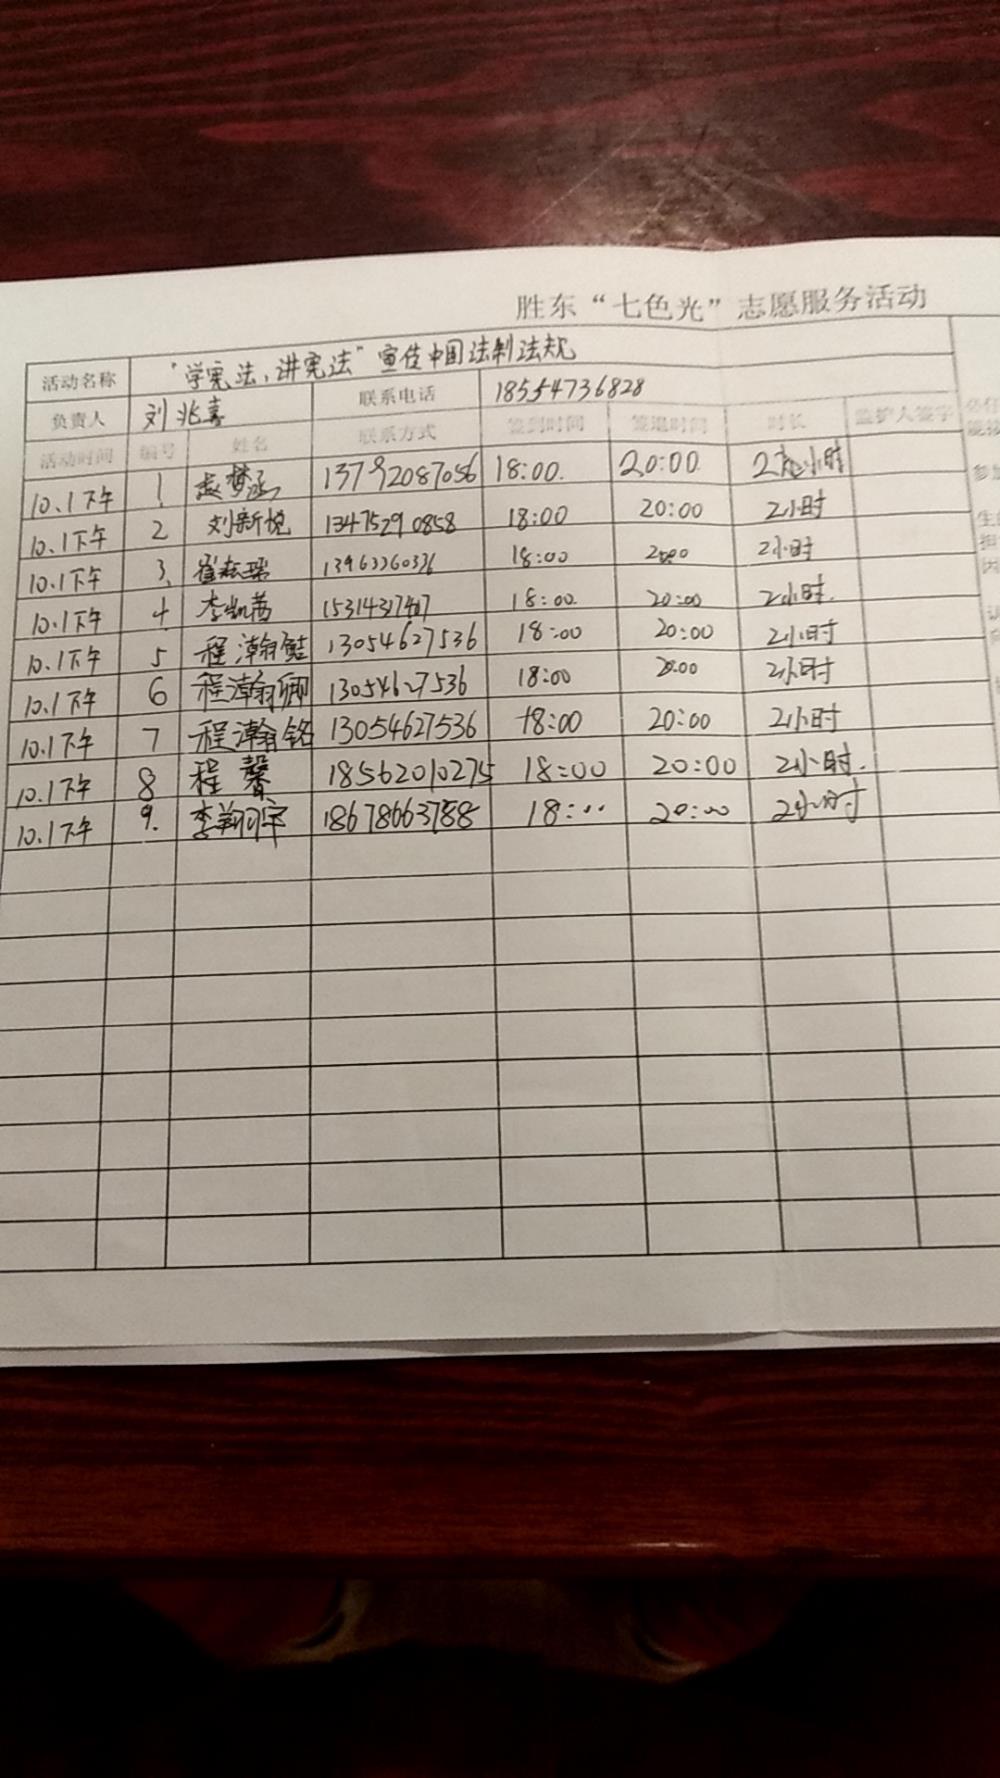 胜东“七色光”志愿服务活动
活动名称 “学宪法、讲宪法”宣传中国法制法规
负责人 刘兆喜 联系电话 18554736828
活动时间 编号 姓名 联系方式 签到时间 签退时间 时长 监护人签字
10.1下午 1 梦涵 13792087056 18:00. 20:00. 2小时
10.1下午 2 刘新悦 13475290858 18:00 20:00 2小时
10.1下午 3、 崔 瑞 13963360336 18:00 20:00 2小时
10.1下午 4 李凯茜 15314317407 18:00 20:00 2小时.
10.1下午 5 程瀚 13054627536 18:00 20:00 2小时
10.1下午 6 程瀚卿 13054627536 18:00 20:00 2小时
10.1下午 7 程瀚铭 13054627536 18:00 20:00 2小时
10.1下午 8 程馨 18562010275 18:00 20:00 2小时.
10.1下午 9. 李翔宇 18678663788 18:00 20:00 2小时